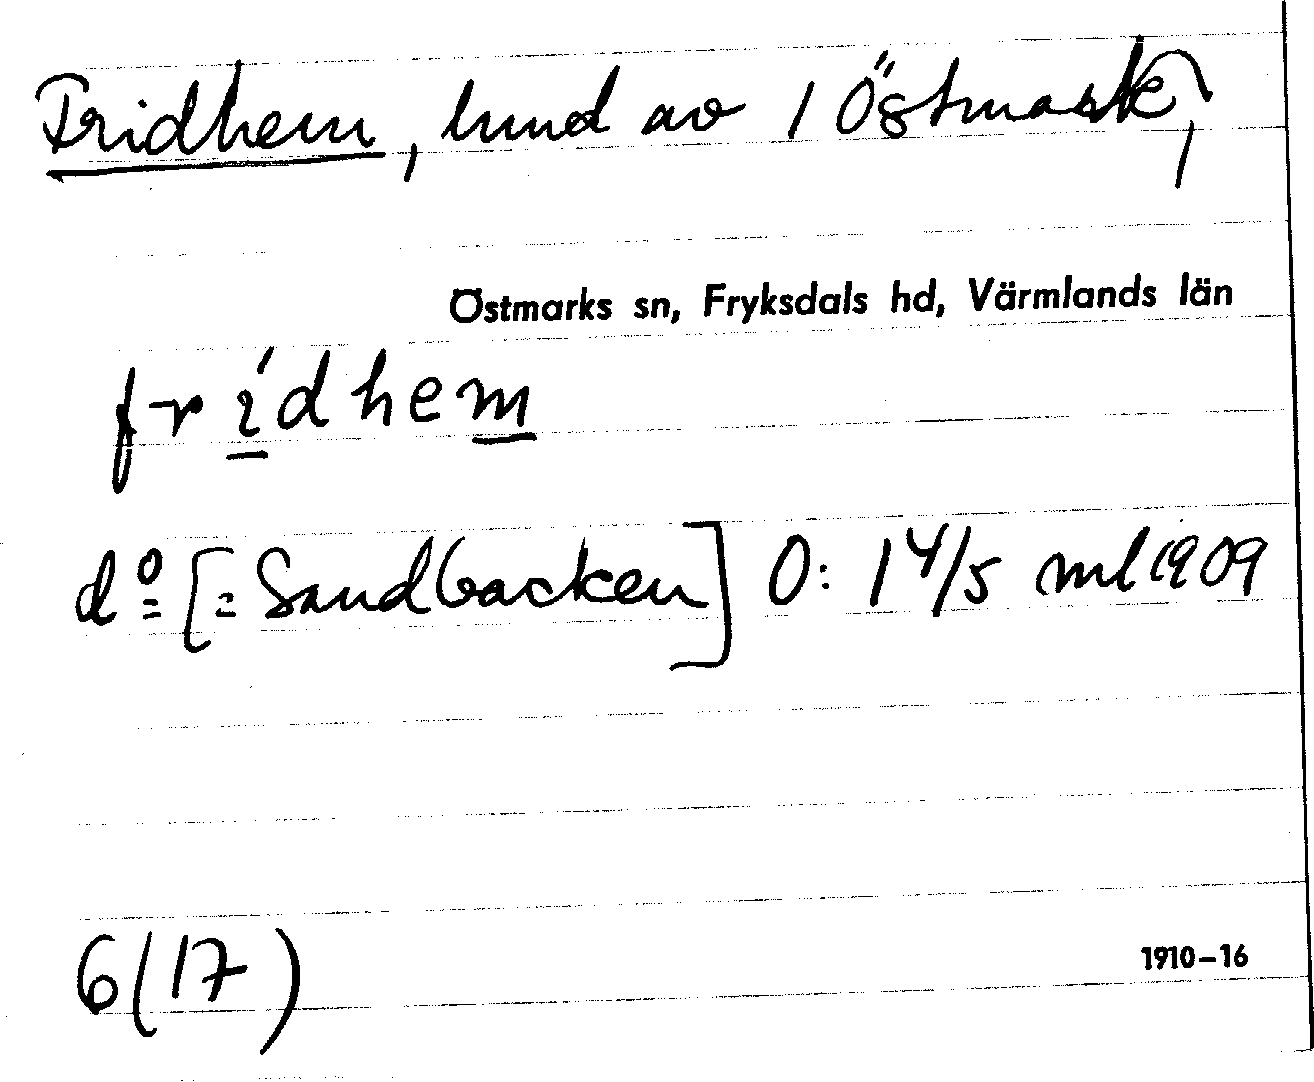 Fridhem, lund av 1 Östmark,
Östmarks sn, Fryksdals hd, Värmlands län
frídhem
do [= Sandbacken] O: 1 4/5 ml 1909
6(17)
1910–16